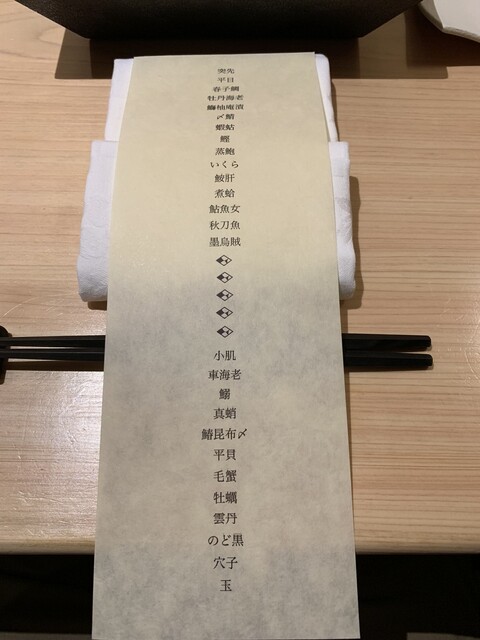 突先
平目
春子鯛
牡丹海老
鰤柚庵漬
〆鯖
蝦蛄
鰹
蒸鮑
いくら
鮟肝
煮蛤
鮎魚女
秋刀魚
墨烏賊
小肌
車海老
鰯
真蛸
鰆昆布〆
平貝
毛蟹
牡蠣
雲丹
のど黒
穴子
玉